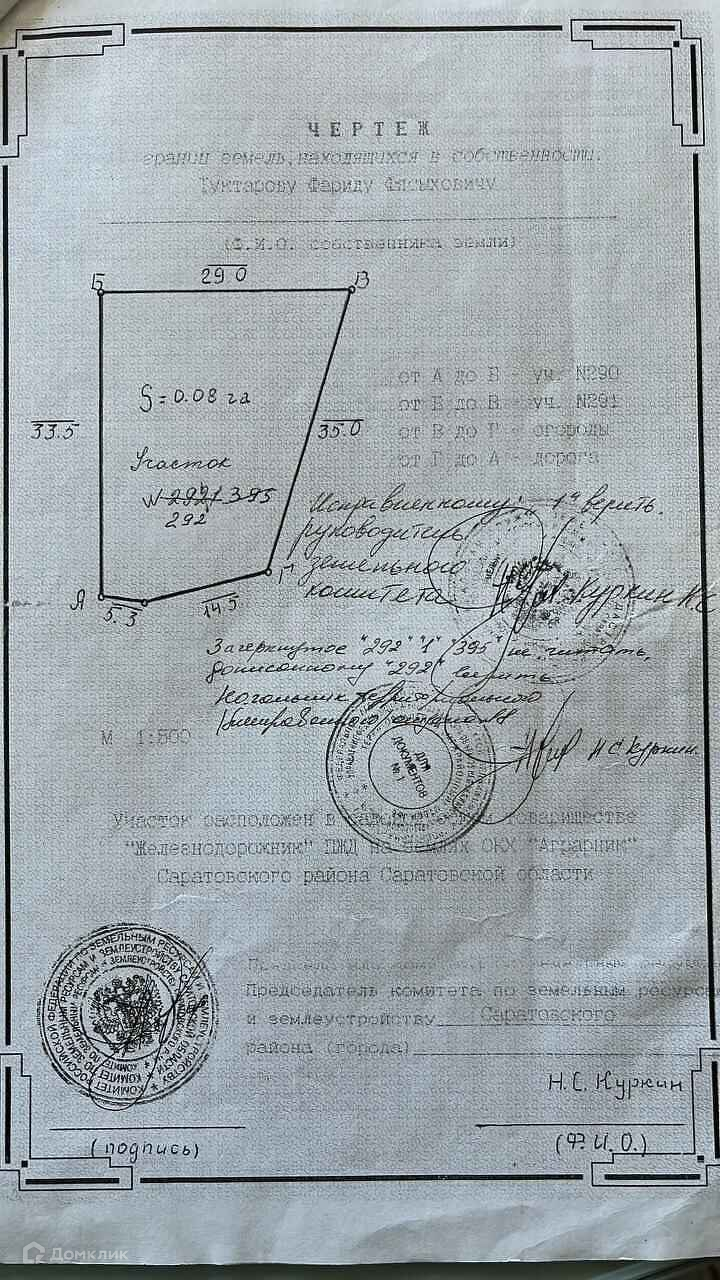 ЧЕРТЕЖ
границ земель, находящихся в собственности.
Туктарову Фариду Фатыховичу
(Ф.И.О. собственника земли)
Б 29.0 В
S=0.08 га
от А до Б - уч. N290
от Б до В - уч. N291
от В до Г - огороды
от Г до А - дорога
33.5
35.0
Участок
N 2921 395
292
Исправленному: "1" верить.
руководитель
земельного
комитета
Куркин Н.С
Г
А
5.3
14.5
Зачеркнутое "292" "1" "395" не читать,
дописанному "292" верить
Начальник территориального
Н С Куркин
М 1:500
ДЛЯ
ДОКУМЕНТОВ
№ 1
Участок расположен в садоводческом товариществе
"Железнодорожник" ПЖД на землях ОКХ "Аграрник"
Саратовского района Саратовской области
Председатель комитета по земельным ресурсам
и землеустройству Саратовского
района (города)
Н.С. Куркин
(подпись)
(Ф.И.О.)
Домклик